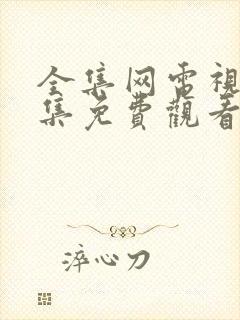 全集网电視
集免費觀看
淬心刀